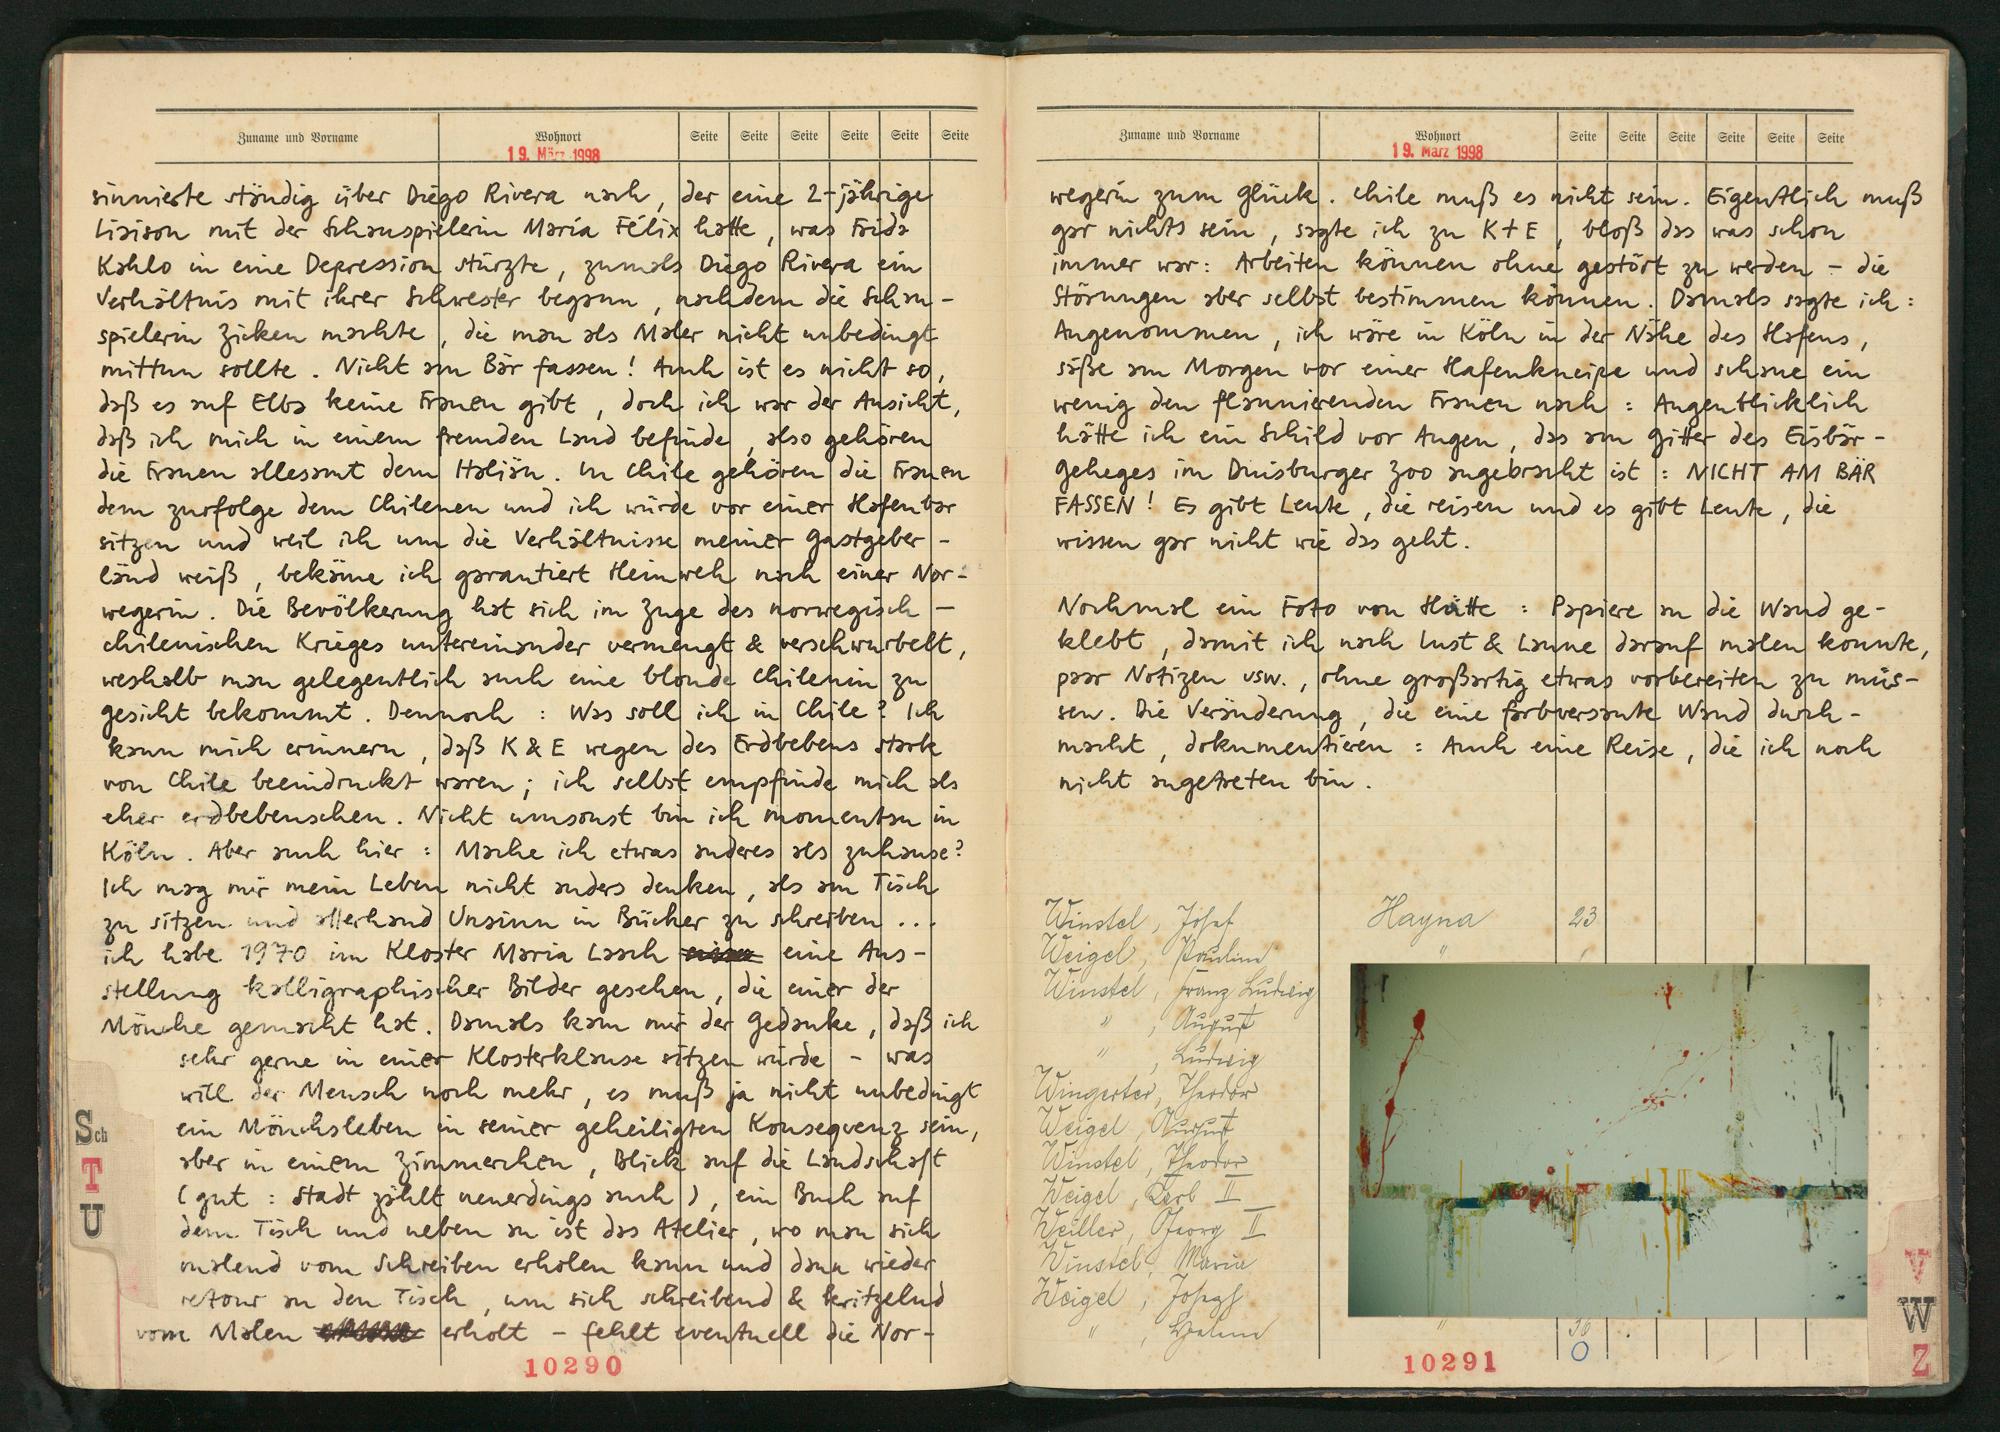 Zuname und Vorname Wohnort Seite Seite Seite Seite Seite Seite
19. März 1998
sinnierte ständig über Diego Rivera nach, der eine 2-jährige
Liaison mit der Schauspielerin Maria Félix hatte, was Frida
Kahlo in eine Depression stürzte, zumals Diego Rivera ein
Verhältnis mit ihrer Schwester begann, nachdem die Schau-
spielerin Zicken machte, die man als Maler nicht unbedingt
mittun sollte. Nicht am Bär fassen! Auch ist es nicht so,
daß es auf Elba keine Frauen gibt, doch ich war der Ansicht,
daß ich mich in einem fremden Land befinde, also gehören
die Frauen allesamt dem Italiän. In Chile gehören die Frauen
dem zurfolge dem Chilenen und ich würde vor einer Hafenbar
sitzen und weil ich um die Verhältnisse meiner Gastgeber-
länd weiß, bekäme ich garantiert Heimweh nach einer Nor-
wegerin. Die Bevölkerung hat sich im Zuge des norwegisch-
chilenischen Krieges untereinander vermengt & verschwurbelt,
weshalb man gelegentlich auch eine blonde Chilenin zu
gesicht bekommt. Dennoch: Was soll ich in Chile? Ich
kann mich erinnern, daß K & E wegen des Erdbebens stark
von Chile beeindruckt waren; ich selbst empfinde mich als
eher erdbebenscheu. Nicht umsonst bin ich momentan in
Köln. Aber auch hier: Mache ich etwas anderes als zuhause?
Ich mag mir mein Leben nicht anders denken, als am Tisch
zu sitzen und allerhand Unsinn in Bücher zu schreiben ...
ich habe 1970 im Kloster Maria Laach eine Aus-
stellung kalligraphischer Bilder gesehen, die einer der
Mönche gemacht hat. Damals kam mir der Gedanke, daß ich
sehr gerne in einer Klosterklause sitzen würde - was
will der Mensch noch mehr, es muß ja nicht unbedingt
ein Mönchsleben in seiner geheiligten Konsequenz sein,
aber in einem Zimmerchen, Blick auf die Landschaft
(gut: Stadt zählt neuerdings auch), ein Buch auf
dem Tisch und neben an ist das Atelier, wo man sich
malend vom Schreiben erholen kann und dann wieder
retour an den Tisch, um sich schreibend & kritzelnd
vom Malen erholt - fehlt eventuell die Nor-
Sch
T
U
10290
Zuname und Vorname Wohnort Seite Seite Seite Seite Seite Seite
19. März 1998
wegerin zum Glück. Chile muß es nicht sein. Eigentlich muß
gar nichts sein, sagte ich zu K+E, bloß das was schon
immer war: Arbeiten können ohne gestört zu werden - die
Störungen aber selbst bestimmen können. Damals sagte ich:
Angenommen, ich wäre in Köln in der Nähe des Hafens,
säße am Morgen vor einer Hafenkneipe und schaue ein
wenig den flannierenden Frauen nach: Augenblicklich
hätte ich ein Schild vor Augen, das am Gitter des Eisbär-
Geheges im Duisburger Zoo angebracht ist: NICHT AM BÄR
FASSEN! Es gibt Leute, die reisen und es gibt Leute, die
wissen gar nicht wie das geht.
Nochmal ein Foto von Hütte: Papiere an die Wand ge-
klebt, damit ich nach Lust & Laune darauf malen konnte,
paar Notizen usw., ohne großartig etwas vorbereiten zu müs-
sen. Die Veränderung, die eine farbversaute Wand durch-
macht, dokumentieren: Auch eine Reise, die ich noch
nicht angetreten bin.
Winstel, Josef Hayna 23
Weigel, Pauline "
Winstel, Franz Ludwig
" , August
" , Ludwig
Wingerter, Theodor
Weigel, August
Winstel, Theodor
Weigel, II
Weiller, Georg II
Winstel, Maria
Weigel, Joseph
" , "
V
W
Z
10291